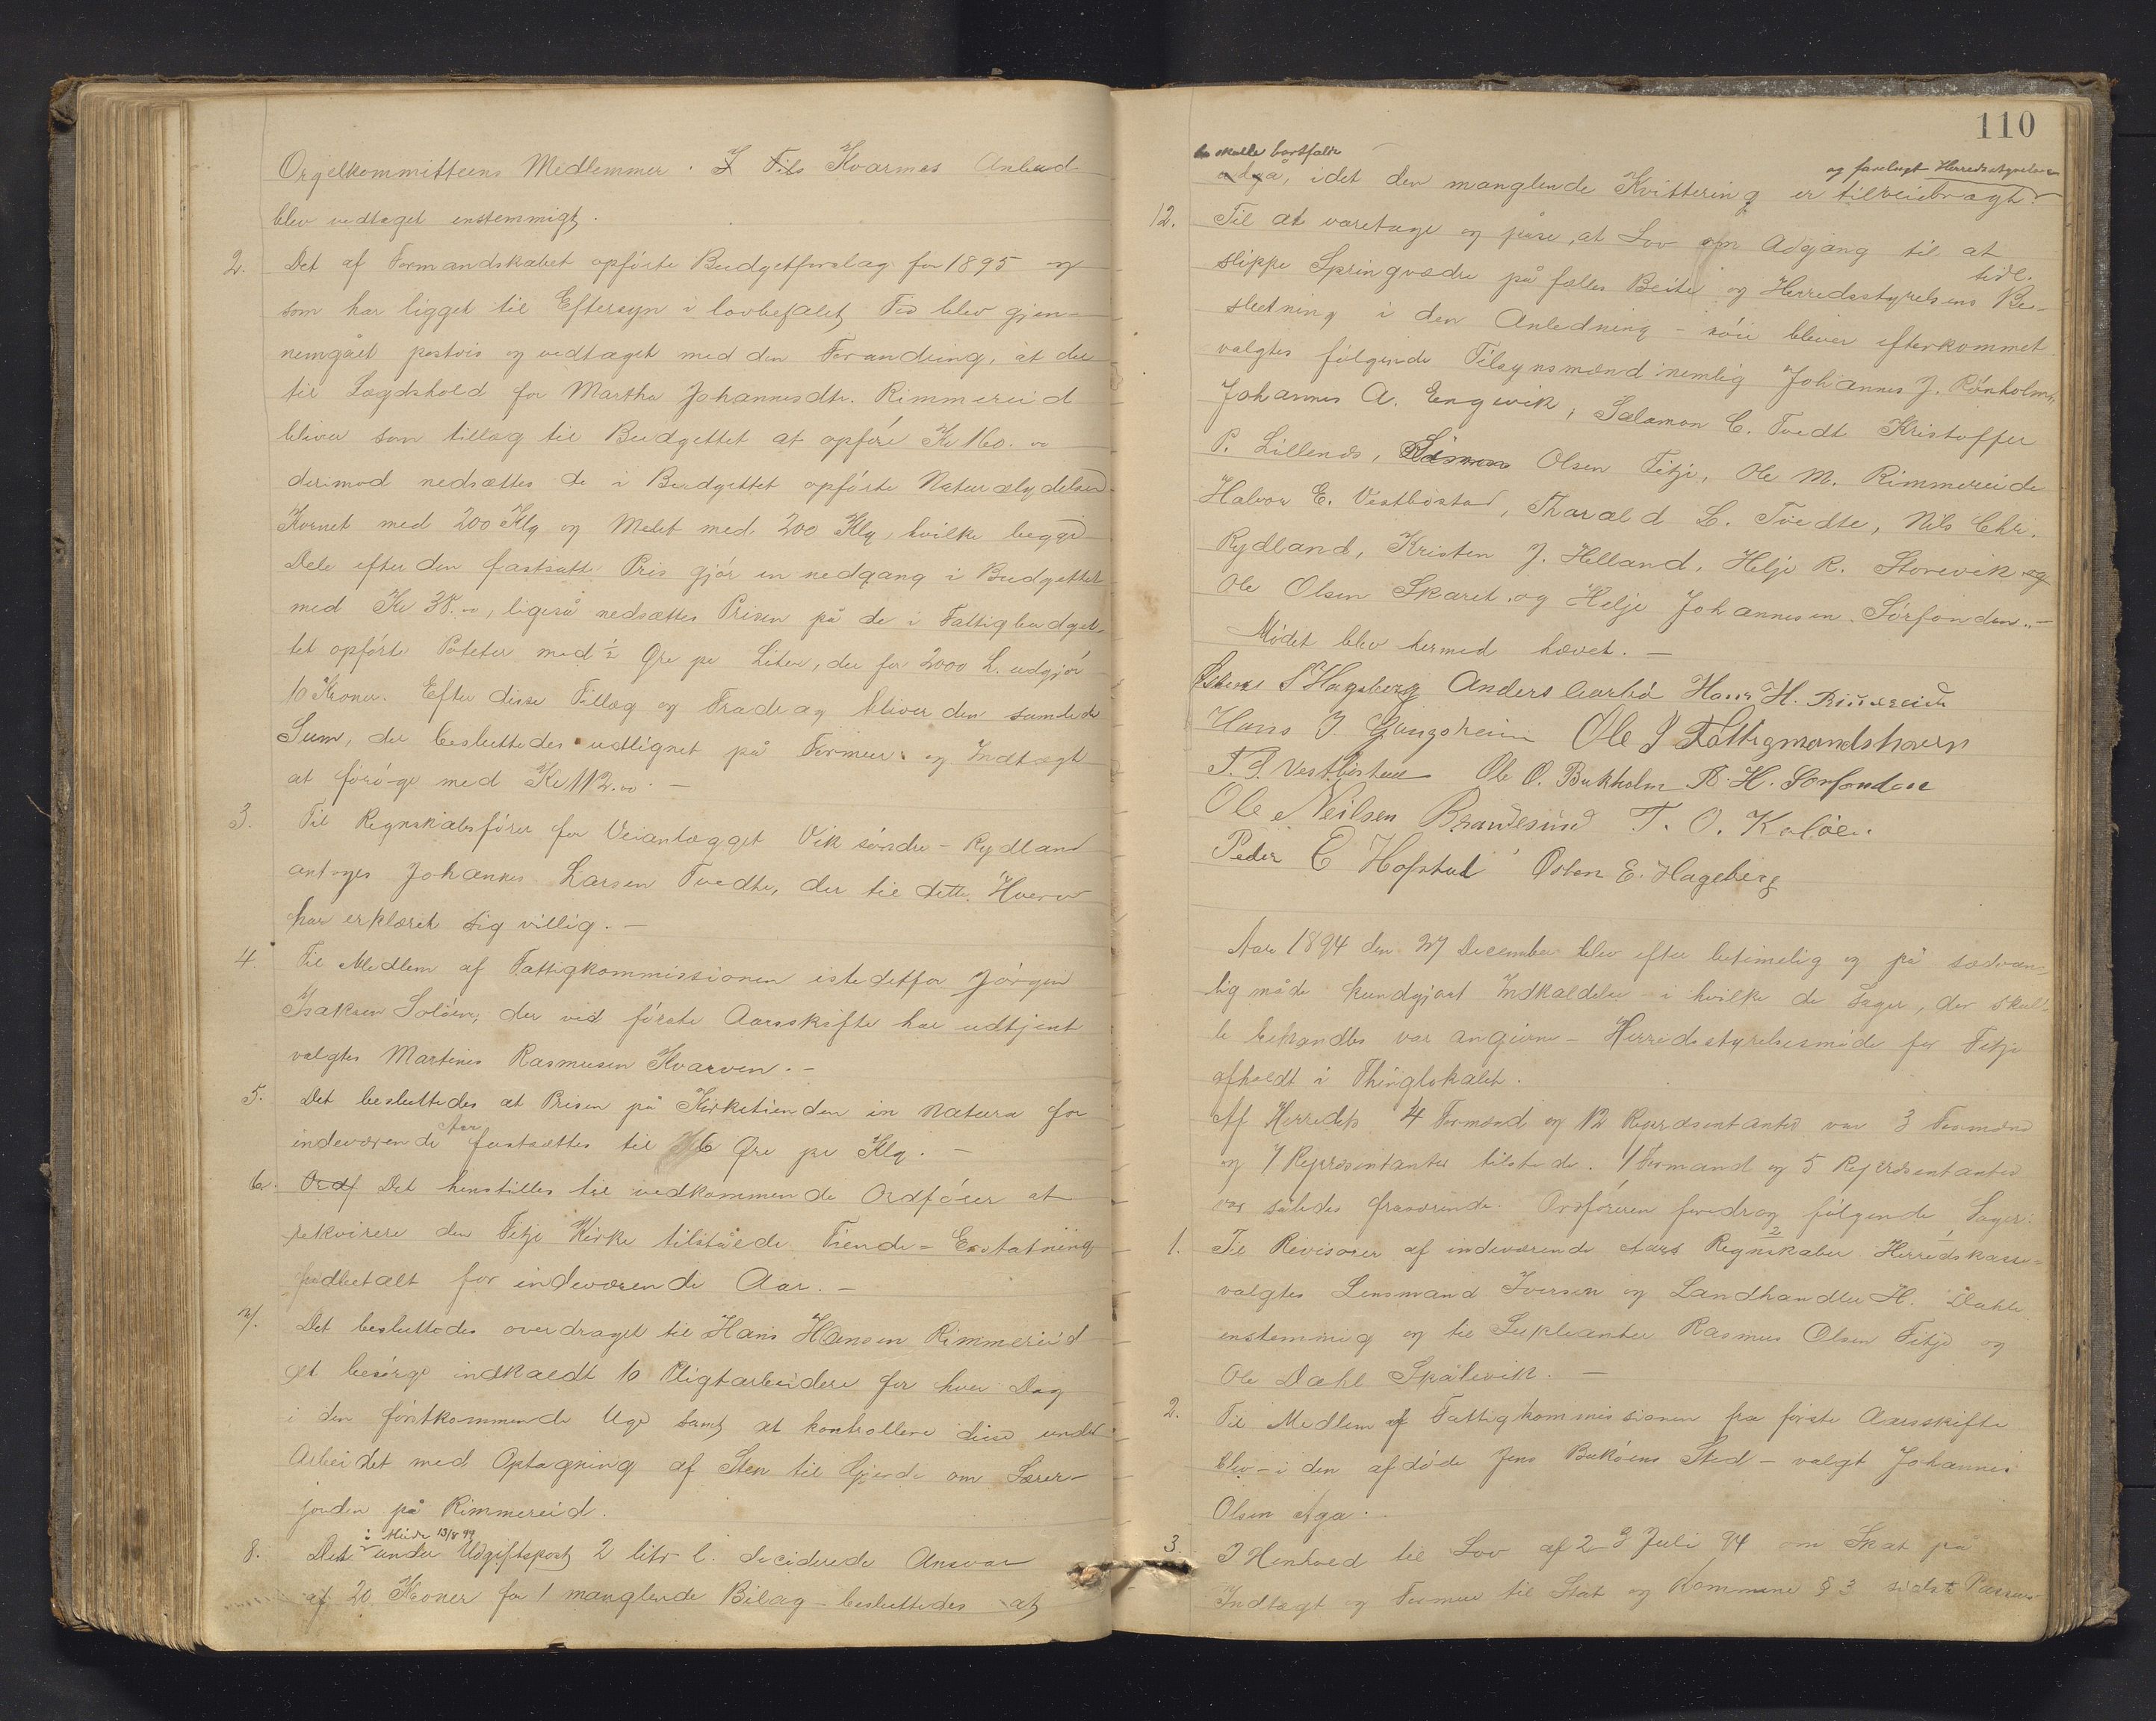 Orgelkommitteens Medlemmer. Nils Kvarmes Anbud
blev vedtaget enstemmigt.
2. Det af Formandskabet opførte Budgetforslag for 1895 og
som har ligget til Eftersyn i lovbefalet Tid blev gjen-
nemgået postvis og vedtaget med den Forandring, at der
til Lægdshold for Martha Johannesdtr. Rimmereid
bliver som tillæg til Budgettet at opføre Kr 160.00
derimod nedsættes de i Budgettet opførte Naturalydelser
Kornet med 200 Klg og Melet med 200 Klg, hvilke begge
Dele efter den fastsatte Pris gjør en nedgang i Budgettet
med Kr 38.00, ligeså nedsættes Prisen på de i Fattigbudget-
tet opførte Poteter med ½ Øre pr Liter, der for 2000 L. udgjør
10 Kroner. Efter disse Tillæg og Fradrag bliver den samlede
Sum, der besluttedes udlignet på Formue og Indtægt
at forøge med Kr 112.00. —
3. Til Regnskabsfører for Veianlægget Vik søndre - Rydland
antoges Johannes Larsen Tvedte, der til dette Hverv
har erklæret sig villig. —
4. Til Medlem af Fattigkommissionen istedetfor Jørgen
Isaksen Soløen, der ved første Aarsskifte har udtjent
valgtes Martines Rasmusen Kvarven. —
5. Det besluttedes at Prisen på Kirketienden in natura for
indeværende Aar fastsættes til 16 Øre pr Klg. —
6. Ordf Det henstilles til vedkommende Ordfører at
rekvirere den Fitje Kirke tilståede Tiende-Erstatning
udbetalt for indeværende Aar. —
7. Det besluttedes overdraget til Hans Hansen Rimmereid
at besørge indkaldt 10 Pligtarbeidere for hver Dag
i den førstkommende Uge samt at kontrollere disse under
Arbeidet med Optagning af Sten til Gjerde om Lærer-
jorden på Rimmereid.
8. Det i Møde 13/8 94 under Udgiftspost 2 litr l. deciderede Ansvar
af 20 Kroner for 1 manglende Bilag - besluttedes at
110
skulle bortfalde
udgå, idet den manglende Kvittering er tilveiebragt og forelagt Herredsstyrelsen
12. Til at varetage og påse, at Lov om Adgang til at
slippe Springvædre på fælles Beite og Herredsstyrelsens tidl. Be-
slutning i den Anledning - nøie bliver efterkommet
valgtes følgende Tilsynsmænd nemlig Johannes J. Rønholm,
Johannes A. Engevik, Salamon C. Tvedte Kristoffer
P. Lillenes, Simon Olsen Fitje, Ole M. Rimmereide
Halvor E. Vestbøstad, Tharald L. Tvedte, Nils Chr.
Rydland, Kristen J. Helland, Helje R. Storevik og
Ole Olsen Skaret og Helje Johannesen Sørfonden. —
Mødet blev hermed hævet. —
S Hageberg Anders Hans H. Rimmereid
Hans J Gangsheim Ole J Fattigmandshavn
T. S. Vestbøstad Ole O. Bukholm R. H. Sørfonden
Ole Neilsen Brandesund T. O. Kaløen
Peder C Hofstad Østen E. Hageberg
Aar 1894 den 27 December blev efter betimelig og på sædvan-
lig måde kundgjort Indkaldelse i hvilke de Sager, der skul-
le behandles var angivne - Herredsstyrelsesmøde for Fitje
afholdt i Thinglokalet.
Af Herredets 4 Formænd og 12 Repræsentanter var 3 Formænd
og 7 Repræsentanter tilstede. 1 Formand og 5 Repræsentanter
var således fraværende. Ordføreren foredrog følgende Sager:
1. Til Revisorer af indeværende Aars Regnskaber 2 Herredskasse- 1
valgtes Lensmand Iversen og Landhandler H. Dahle
enstemmig og til Supleanter Rasmus Olsen Fitje og
Ole Dahl Skålevik. —
2. Til Medlem af Fattigkommissionen fra første Aarsskifte
blev - i den afdøde Jens Bukøens Sted - valgt Johannes
Olsen Aga. -
3. I Henhold til Lov af 23 Juli 94 om Skat på
Indtægt og Formue til Stat og Kommune § 3 sidste Passus